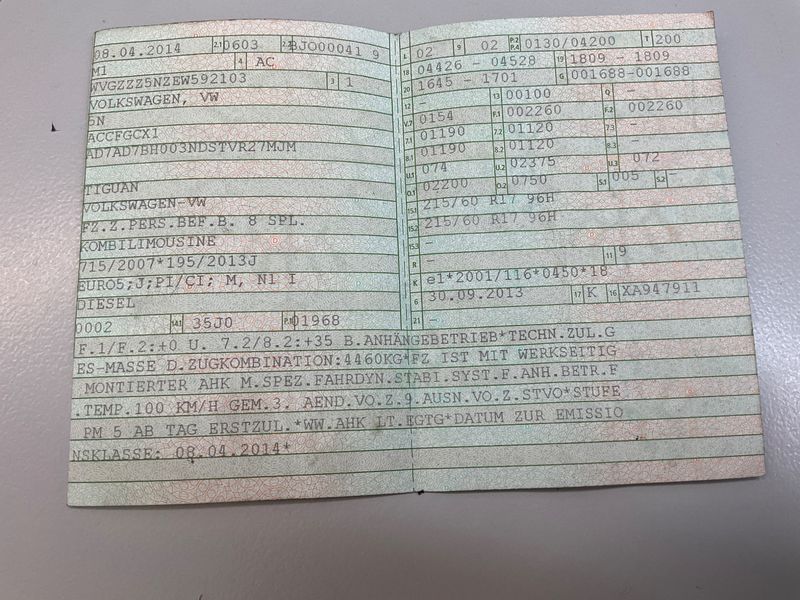 08.04.2014 2.1 0603 2.2 BJO00041 9
M1 4 AC
WVGZZZ5NZEW592103 3 1
VOLKSWAGEN, VW
5N
ACCFGCX1
AD7AD7BH003NDSTVR27MJM
TIGUAN
VOLKSWAGEN-VW
FZ.Z.PERS.BEF.B. 8 SPL.
KOMBILIMOUSINE
715/2007*195/2013J
EURO5;J;PI/CI; M, N1 I
DIESEL
0002 14.1 35J0 P.1 01968
L 02 9 02 P.2 P.4 0130/04200 T 200
18 04426 - 04528 19 1809 - 1809
20 1645 - 1701 G 001688-001688
12 - 13 00100 Q -
V.7 0154 F.1 002260 F.2 002260
7.1 01190 7.2 01120 7.3 -
8.1 01190 8.2 01120 8.3 -
U.1 074 U.2 02375 U.3 072
O.1 02200 O.2 0750 S.1 005 S.2 -
15.1 215/60 R17 96H
15.2 215/60 R17 96H
15.3 -
R - 11 9
K e1*2001/116*0450*18
6 30.09.2013 17 K 16 XA947911
21 -
F.1/F.2:+0 U. 7.2/8.2:+35 B.ANHÄNGEBETRIEB*TECHN.ZUL.G
ES-MASSE D.ZUGKOMBINATION:4460KG*FZ IST MIT WERKSEITIG
MONTIERTER AHK M.SPEZ.FAHRDYN.STABI.SYST.F.ANH.BETR.F
.TEMP.100 KM/H GEM.3. AEND.VO.Z.9.AUSN.VO.Z.STVO*STUFE
PM 5 AB TAG ERSTZUL.*WW.AHK LT.EGTG*DATUM ZUR EMISSIO
NSKLASSE: 08.04.2014*